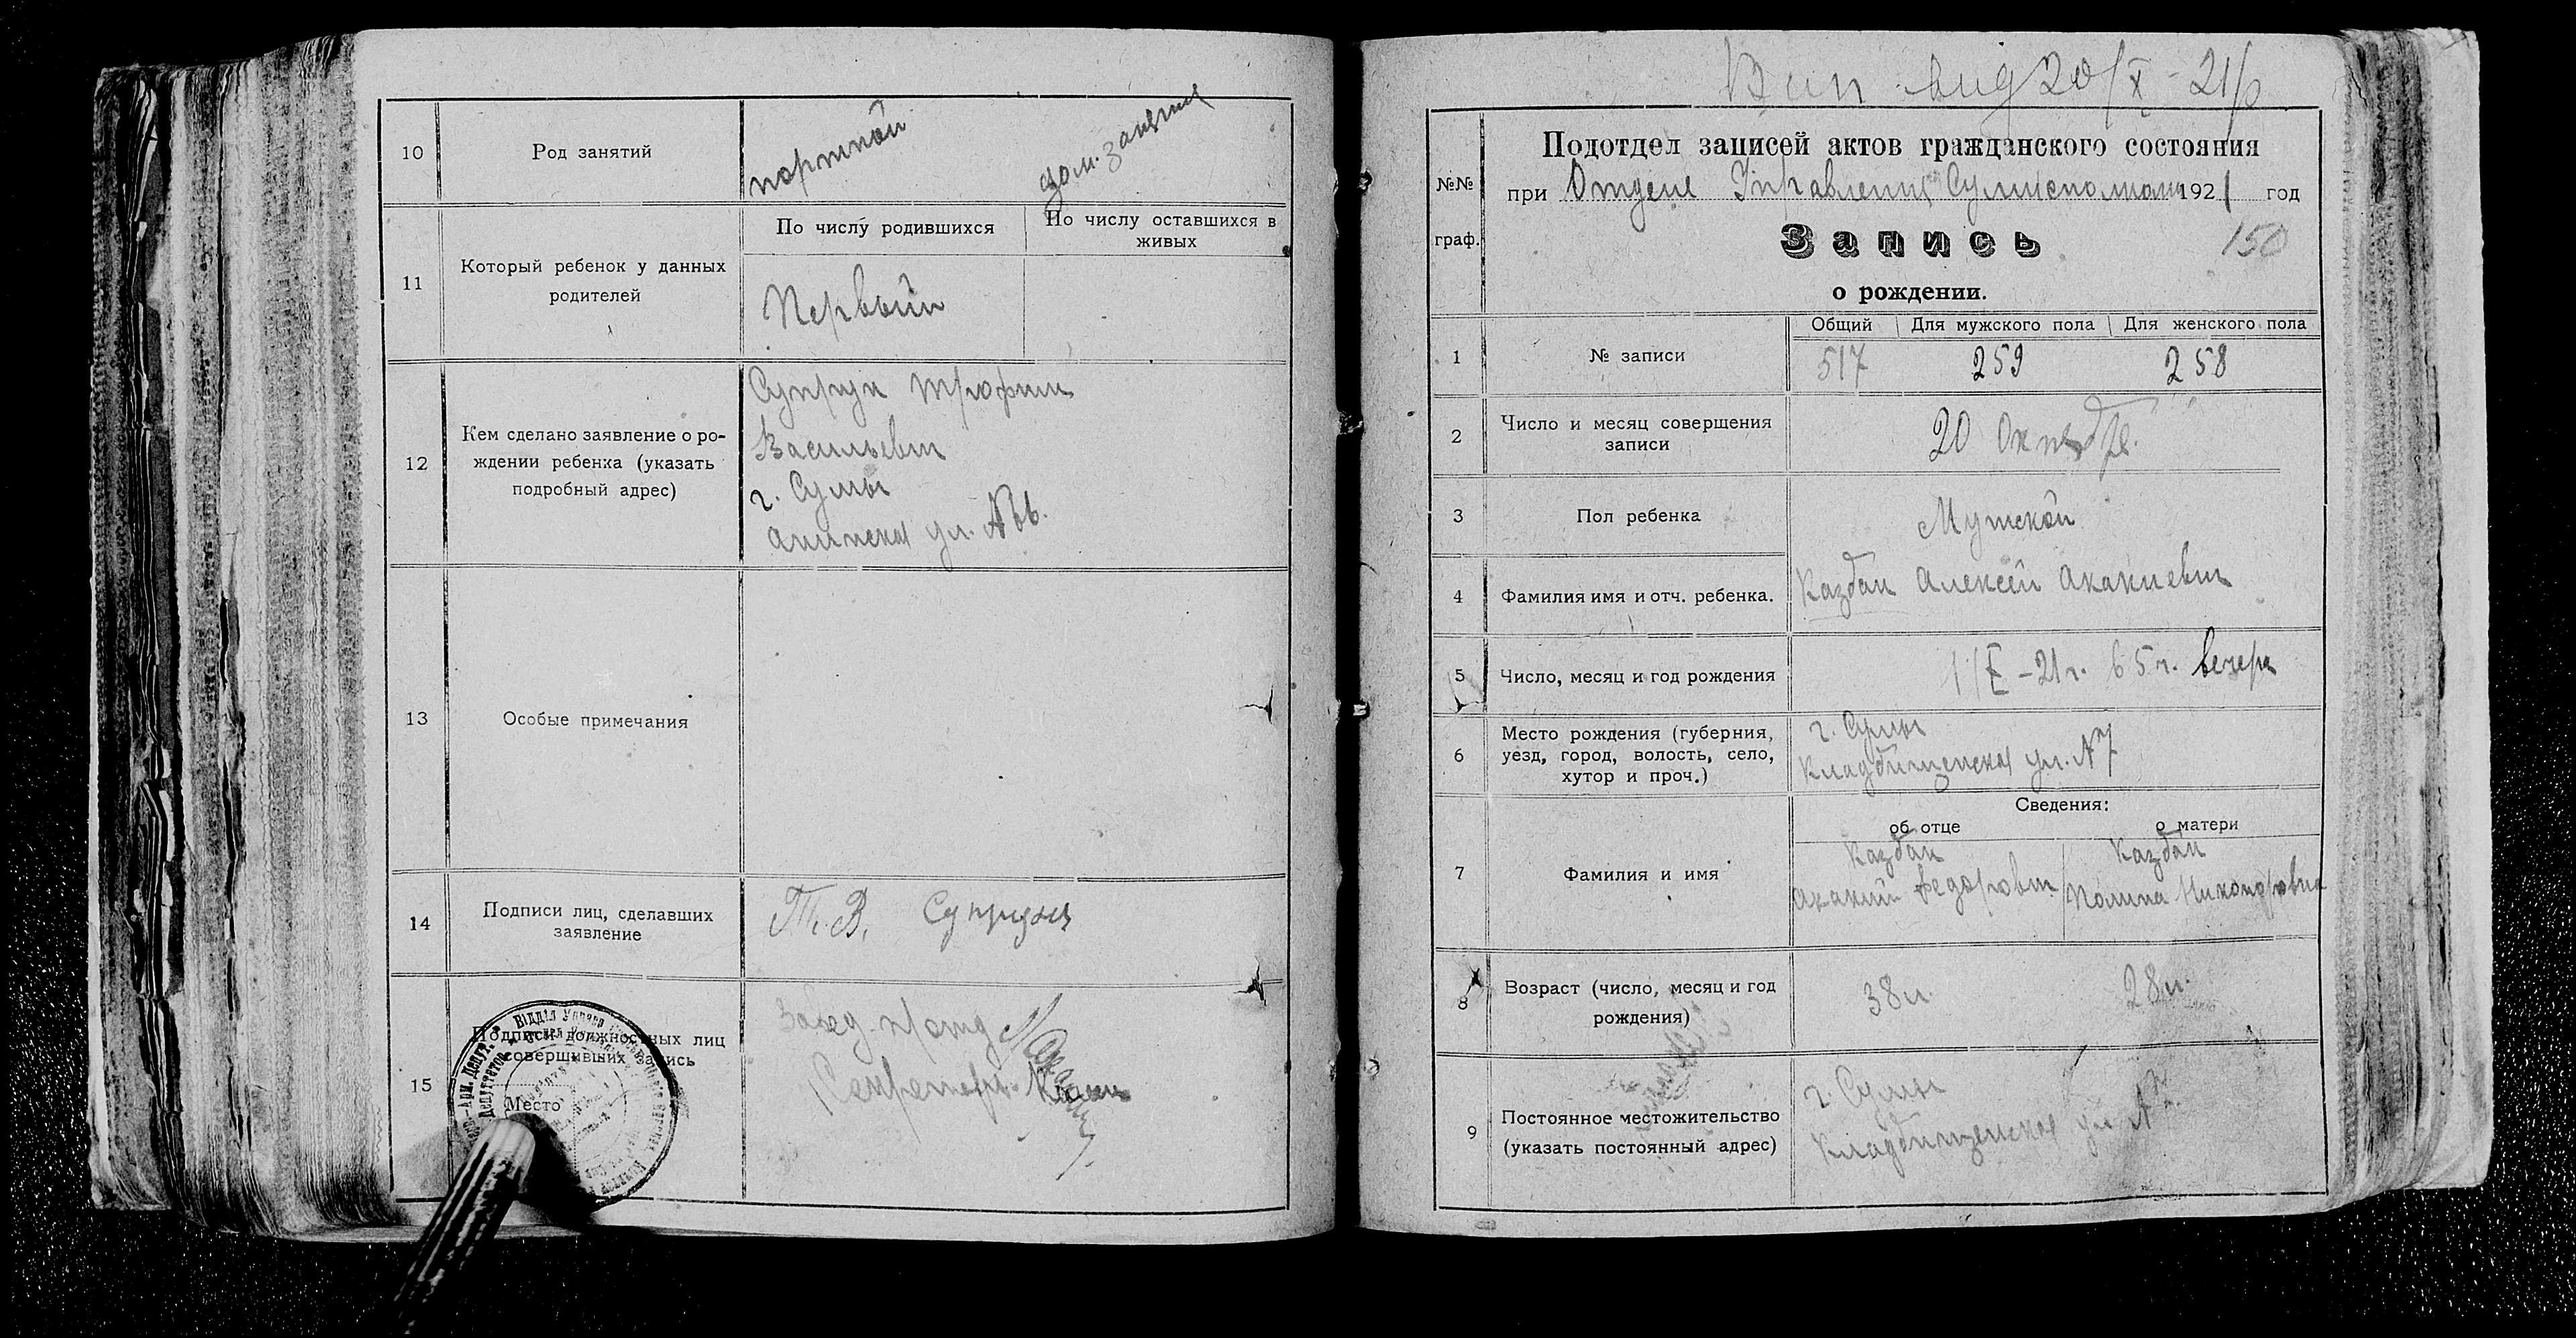 10
Род занятий
портной
дом. занятия
11
Который ребенок у данных
родителей
По числу родившихся
По числу оставшихся в
живых
Первый
12
Кем сделано заявление о ро-
ждении ребенка (указать
подробный адрес)
Супрун Трофим
Васильевич
г. Сумы
ул. №
13
Особые примечания
14
Подписи лиц, сделавших
заявление
Т. В. Супрун
15
Подписи должностных лиц
совершивших запись
Место
Завед.
Секретарь
вид 20/X - 21 р
№№
граф.
Подотдел записей актов гражданского состояния
при Отделе Управления Сумисполкома 1921 год
Запись
150
о рождении.
1
№ записи
Общий
Для мужского пола
Для женского пола
517
259
258
2
Число и месяц совершения
записи
20 Октября
3
Пол ребенка
Мужской
4
Фамилия имя и отч. ребенка.
Казбан Алексей Акакиевич
5
Число, месяц и год рождения
-21 г. в 5 ч. вечера
6
Место рождения (губерния,
уезд, город, волость, село,
хутор и проч.)
г. Сумы
Кладбищенская ул. №7
Сведения:
об отце
о матери
7
Фамилия и имя
Казбан
Акакий Федорович
Казбан
Полина Никоноровна
8
Возраст (число, месяц и год
рождения)
38 л.
28 л.
9
Постоянное местожительство
(указать постоянный адрес)
г. Сумы
Кладбищенская ул. № 7